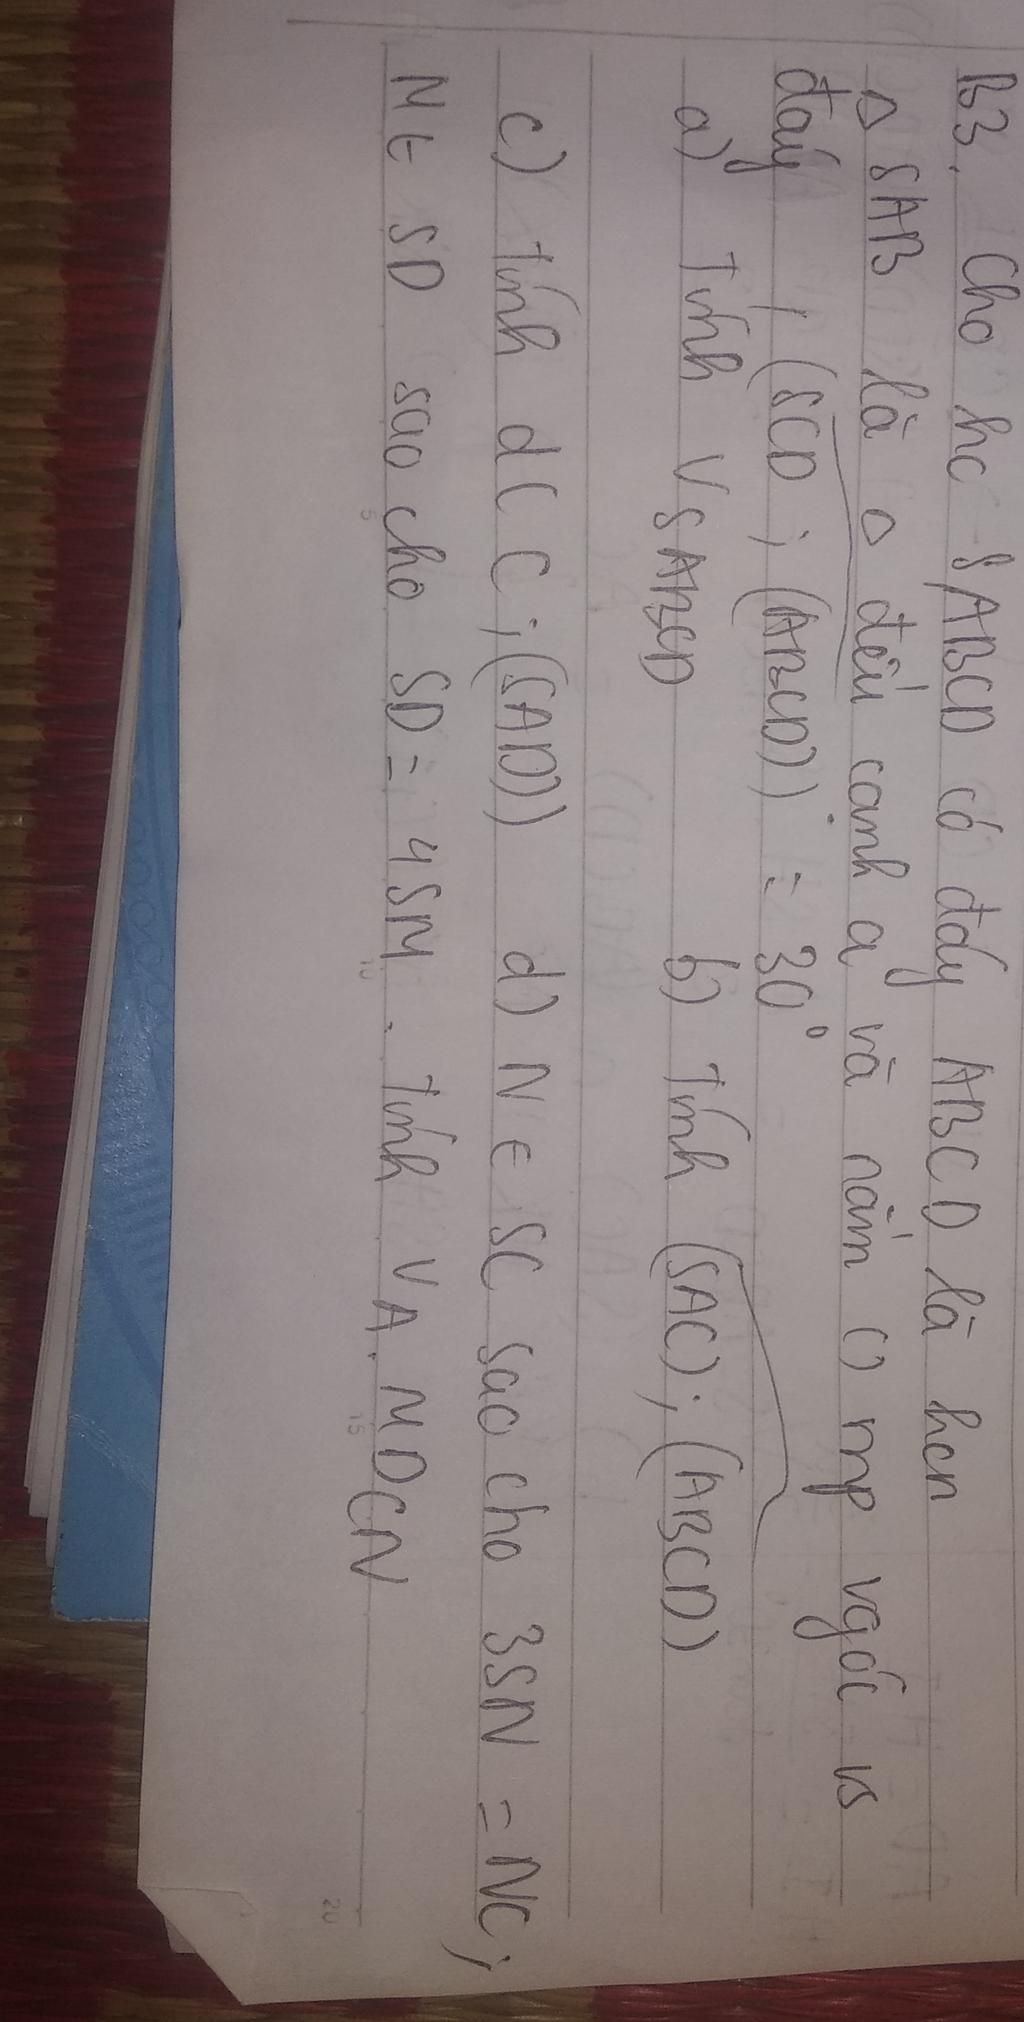 B3. Cho hc S,ABCD có đáy ABCD là hcn
Δ SAB là Δ đều cạnh a và nằm () mp vgóc vs
đáy, (SCD; (ABCD)) = 30°
a) Tính V SABCD b) Tính (SAC); (ABCD)
c) tính d(C;(SAD)) d) N ∈ SC sao cho 3SN = NC;
M ∈ SD sao cho SD = 4SM. Tính VA.MDCN
5
10
15
20